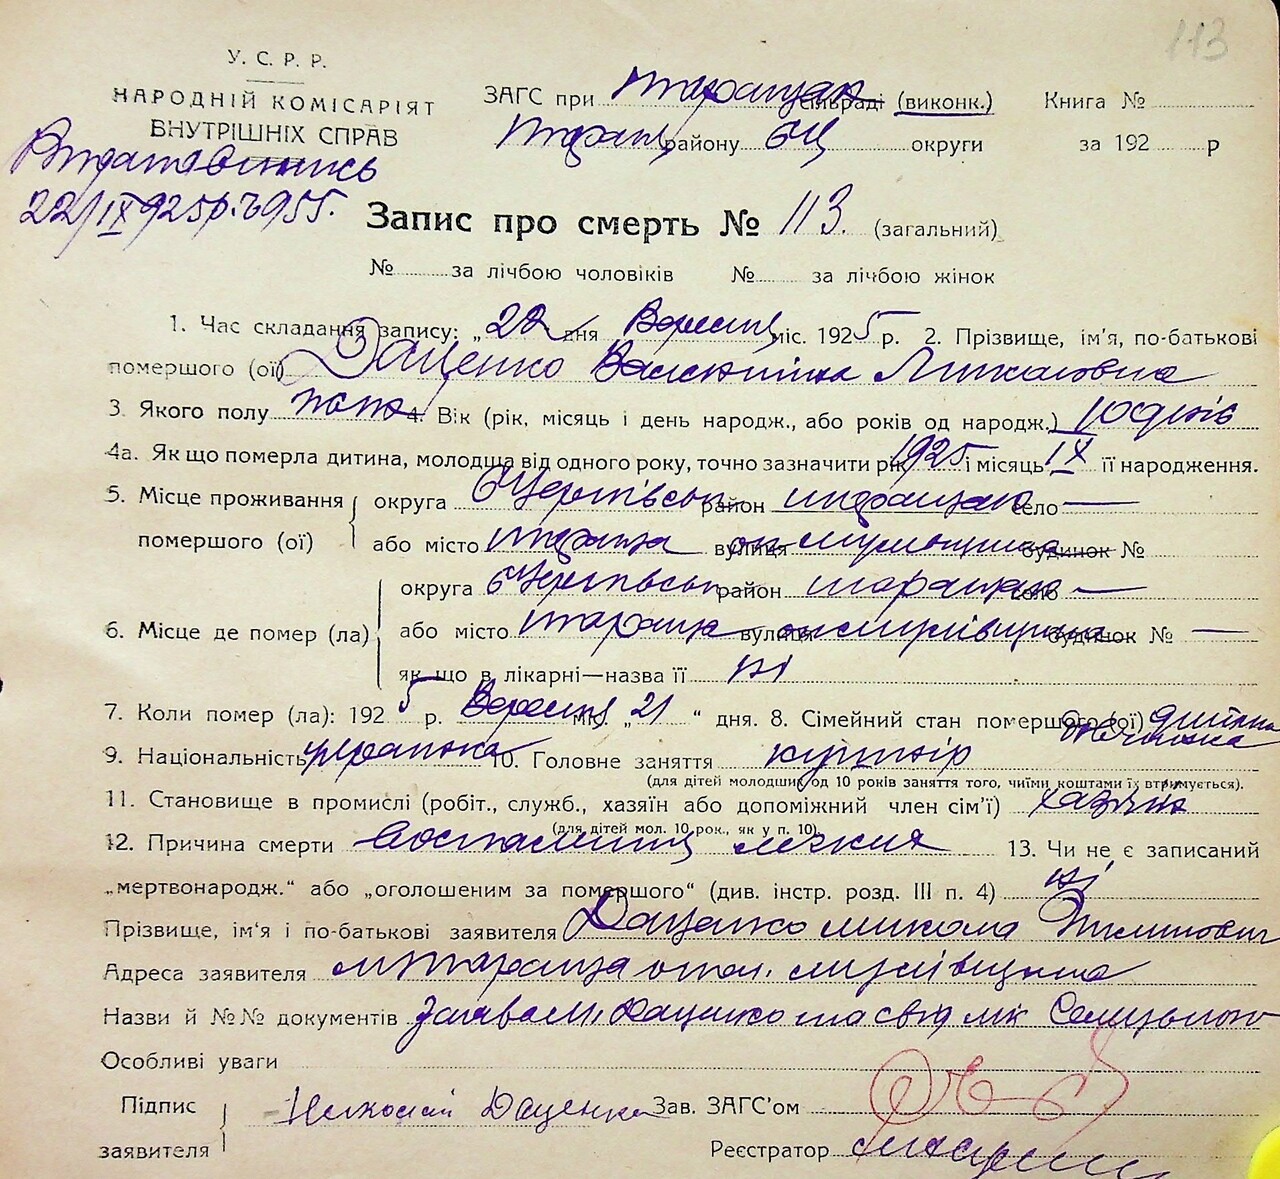 113
У. С. Р. Р.
НАРОДНІЙ КОМІСАРІЯТ
ВНУТРІШНІХ СПРАВ
ЗАГС при Таращан сільраді (виконк.) Книга №
Таращ району БЦ округи за 192 р
22/IX 925р.
Запис про смерть № 113. (загальний)
№ за лічбою чоловіків № за лічбою жінок
1. Час складання запису: „22 дня Вересня міс. 1925 р. 2. Прізвище, ім'я, по-батькові
помершого (ої) Даценко Валентина Миколаївна
3. Якого полу жоноч 4. Вік (рік, місяць і день народж., або років од народж.) 10 днів
4а. Як що померла дитина, молодша від одного року, точно зазначити рік 1925 і місяць IX її народження.
5. Місце проживання помершого (ої) округа БЦерківськ район таращан село —
або місто тараща вулиця будинок №
6. Місце де помер (ла) округа БЦерківськ район таращан село —
або місто тараща вулиця будинок № —
як що в лікарні—назва її ні
7. Коли помер (ла): 1925 р. Вересня міс. „21“ дня. 8. Сімейний стан помершого (ої) дитина
9. Національність українка 10. Головне заняття кушнір
(для дітей молодших од 10 років заняття того, чиїми коштами їх втримується).
11. Становище в промислі (робіт., служб., хазяїн або допоміжний член сім'ї) хазяїн
(для дітей мол. 10 рок., як у п. 10).
12. Причина смерти воспаления легких 13. Чи не є записаний
„мертвонародж.“ або „оголошеним за помершого“ (див. інстр. розд. III п. 4) ні
Прізвище, ім'я і по-батькові заявителя Даценко микола
Адреса заявителя м Тараща
Назви й №№ документів заява М. Даценко та свід лік
Особливі уваги
Підпис заявителя Николай Даценко Зав. ЗАГС'ом
Реєстратор